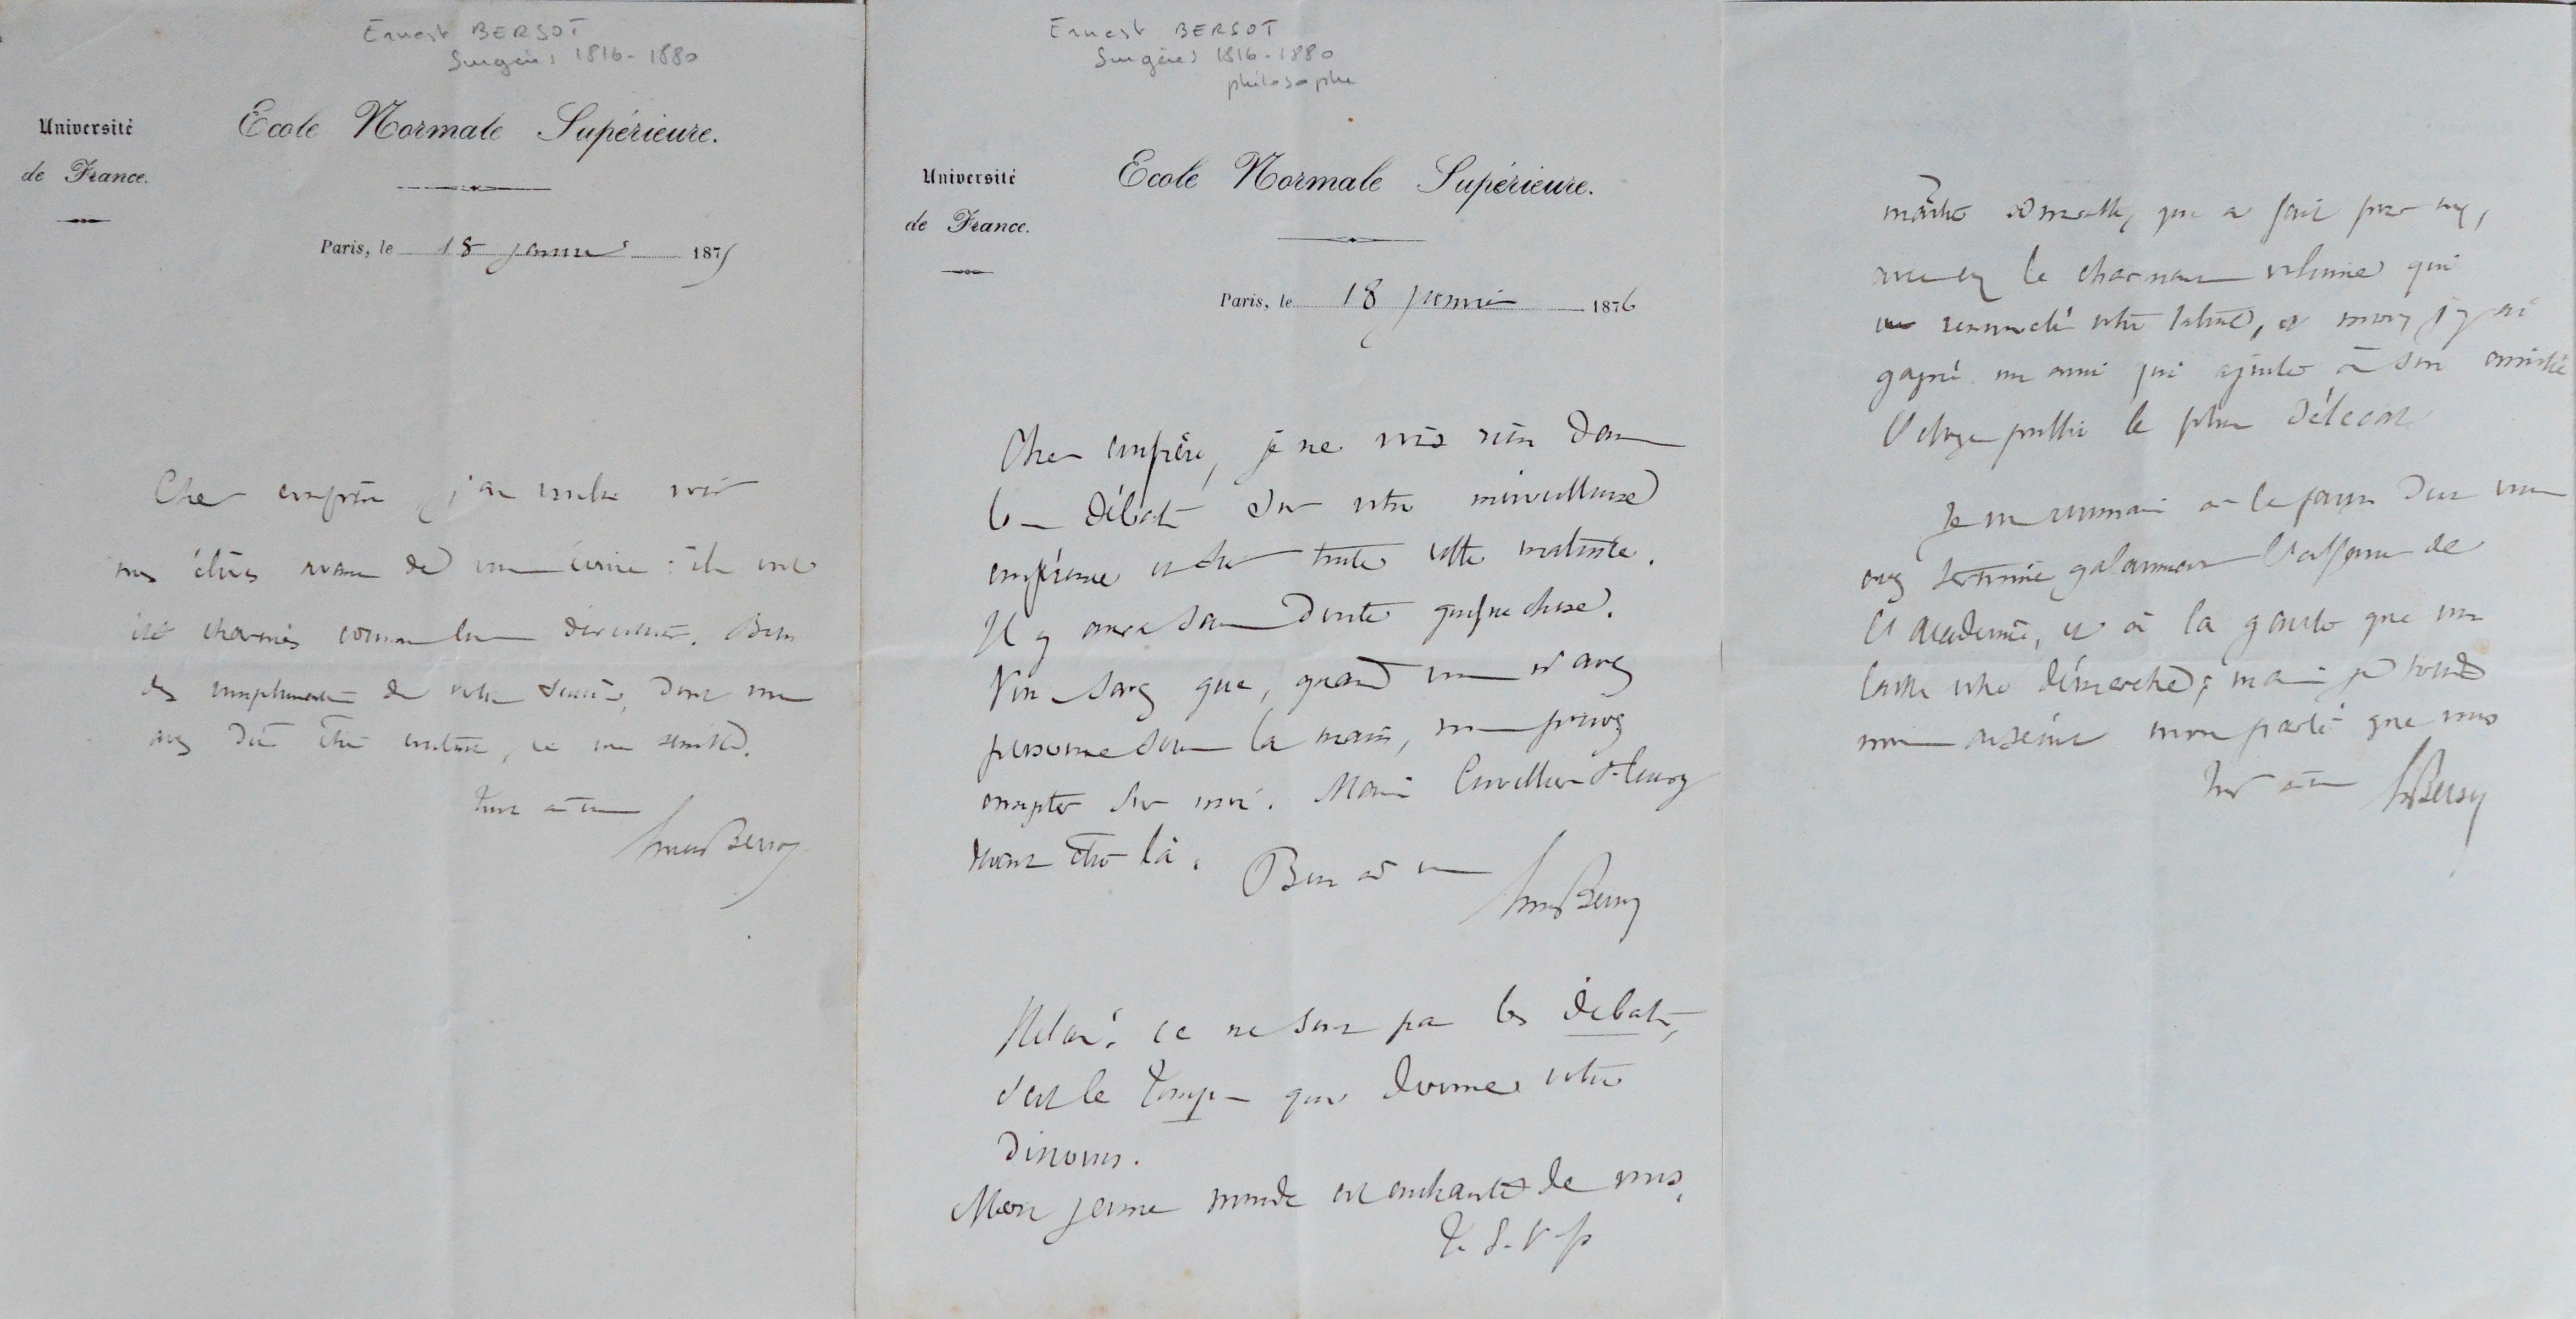 Ernest BERSOT
Surgères 1816-1880
Université
de France.
Ecole Normale Supérieure.
Paris, le 18 janvier 1875
Cher confrère, j'ai voulu voir
nos élèves avant de vous écrire : ils ont
été charmés comme leur directeur. Bien
des compliments de votre succès, dont vous
avez dû être content, ce me semble.
Tout à vous
Ernest Bersot
Ernest BERSOT
Surgères 1816-1880
philosophe
Université
de France.
Ecole Normale Supérieure.
Paris, le 18 janvier 1876
Cher confrère, je ne vois rien dans
les Débats sur votre merveilleuse
conférence et sur toute cette matinée.
Il y aura sans doute quelque chose.
Vous savez que, quand vous n'avez
personne sous la main, vous pouvez
compter sur moi. Mais Cuvillier Fleury
devait être là.
Bien à vous
Ernest Bersot
ce ne sont pas les Débats,
c'est le Temps qui donne votre
discours.
Mon jeune monde est enchanté de vous.
T. S. V. p
qui a fait
le charmant volume qui
votre talent, et moi j'y ai
gagné un ami qui ajoute à son amitié
l'éloge public le plus délicat.
Je me à la façon dont vous
avez terminé galamment l'affaire de
l'Académie, et à la que me
laisse votre démarche; mais je
mon parti que vous
Tout à vous
Bersot